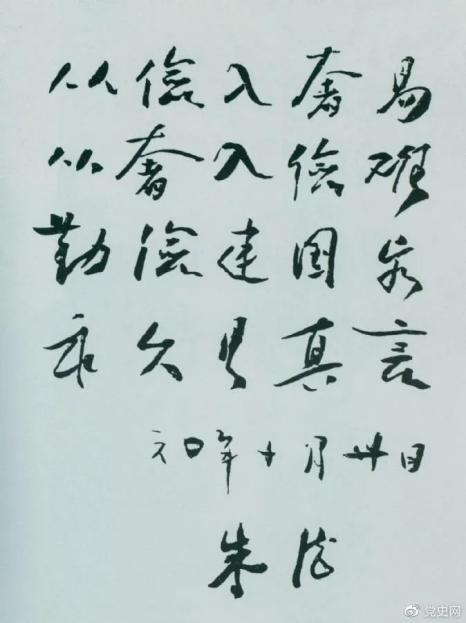 从儉入奢易
从奢入儉难
勤儉建国家
永久是真言
六〇年十月廿日
朱德
党史网